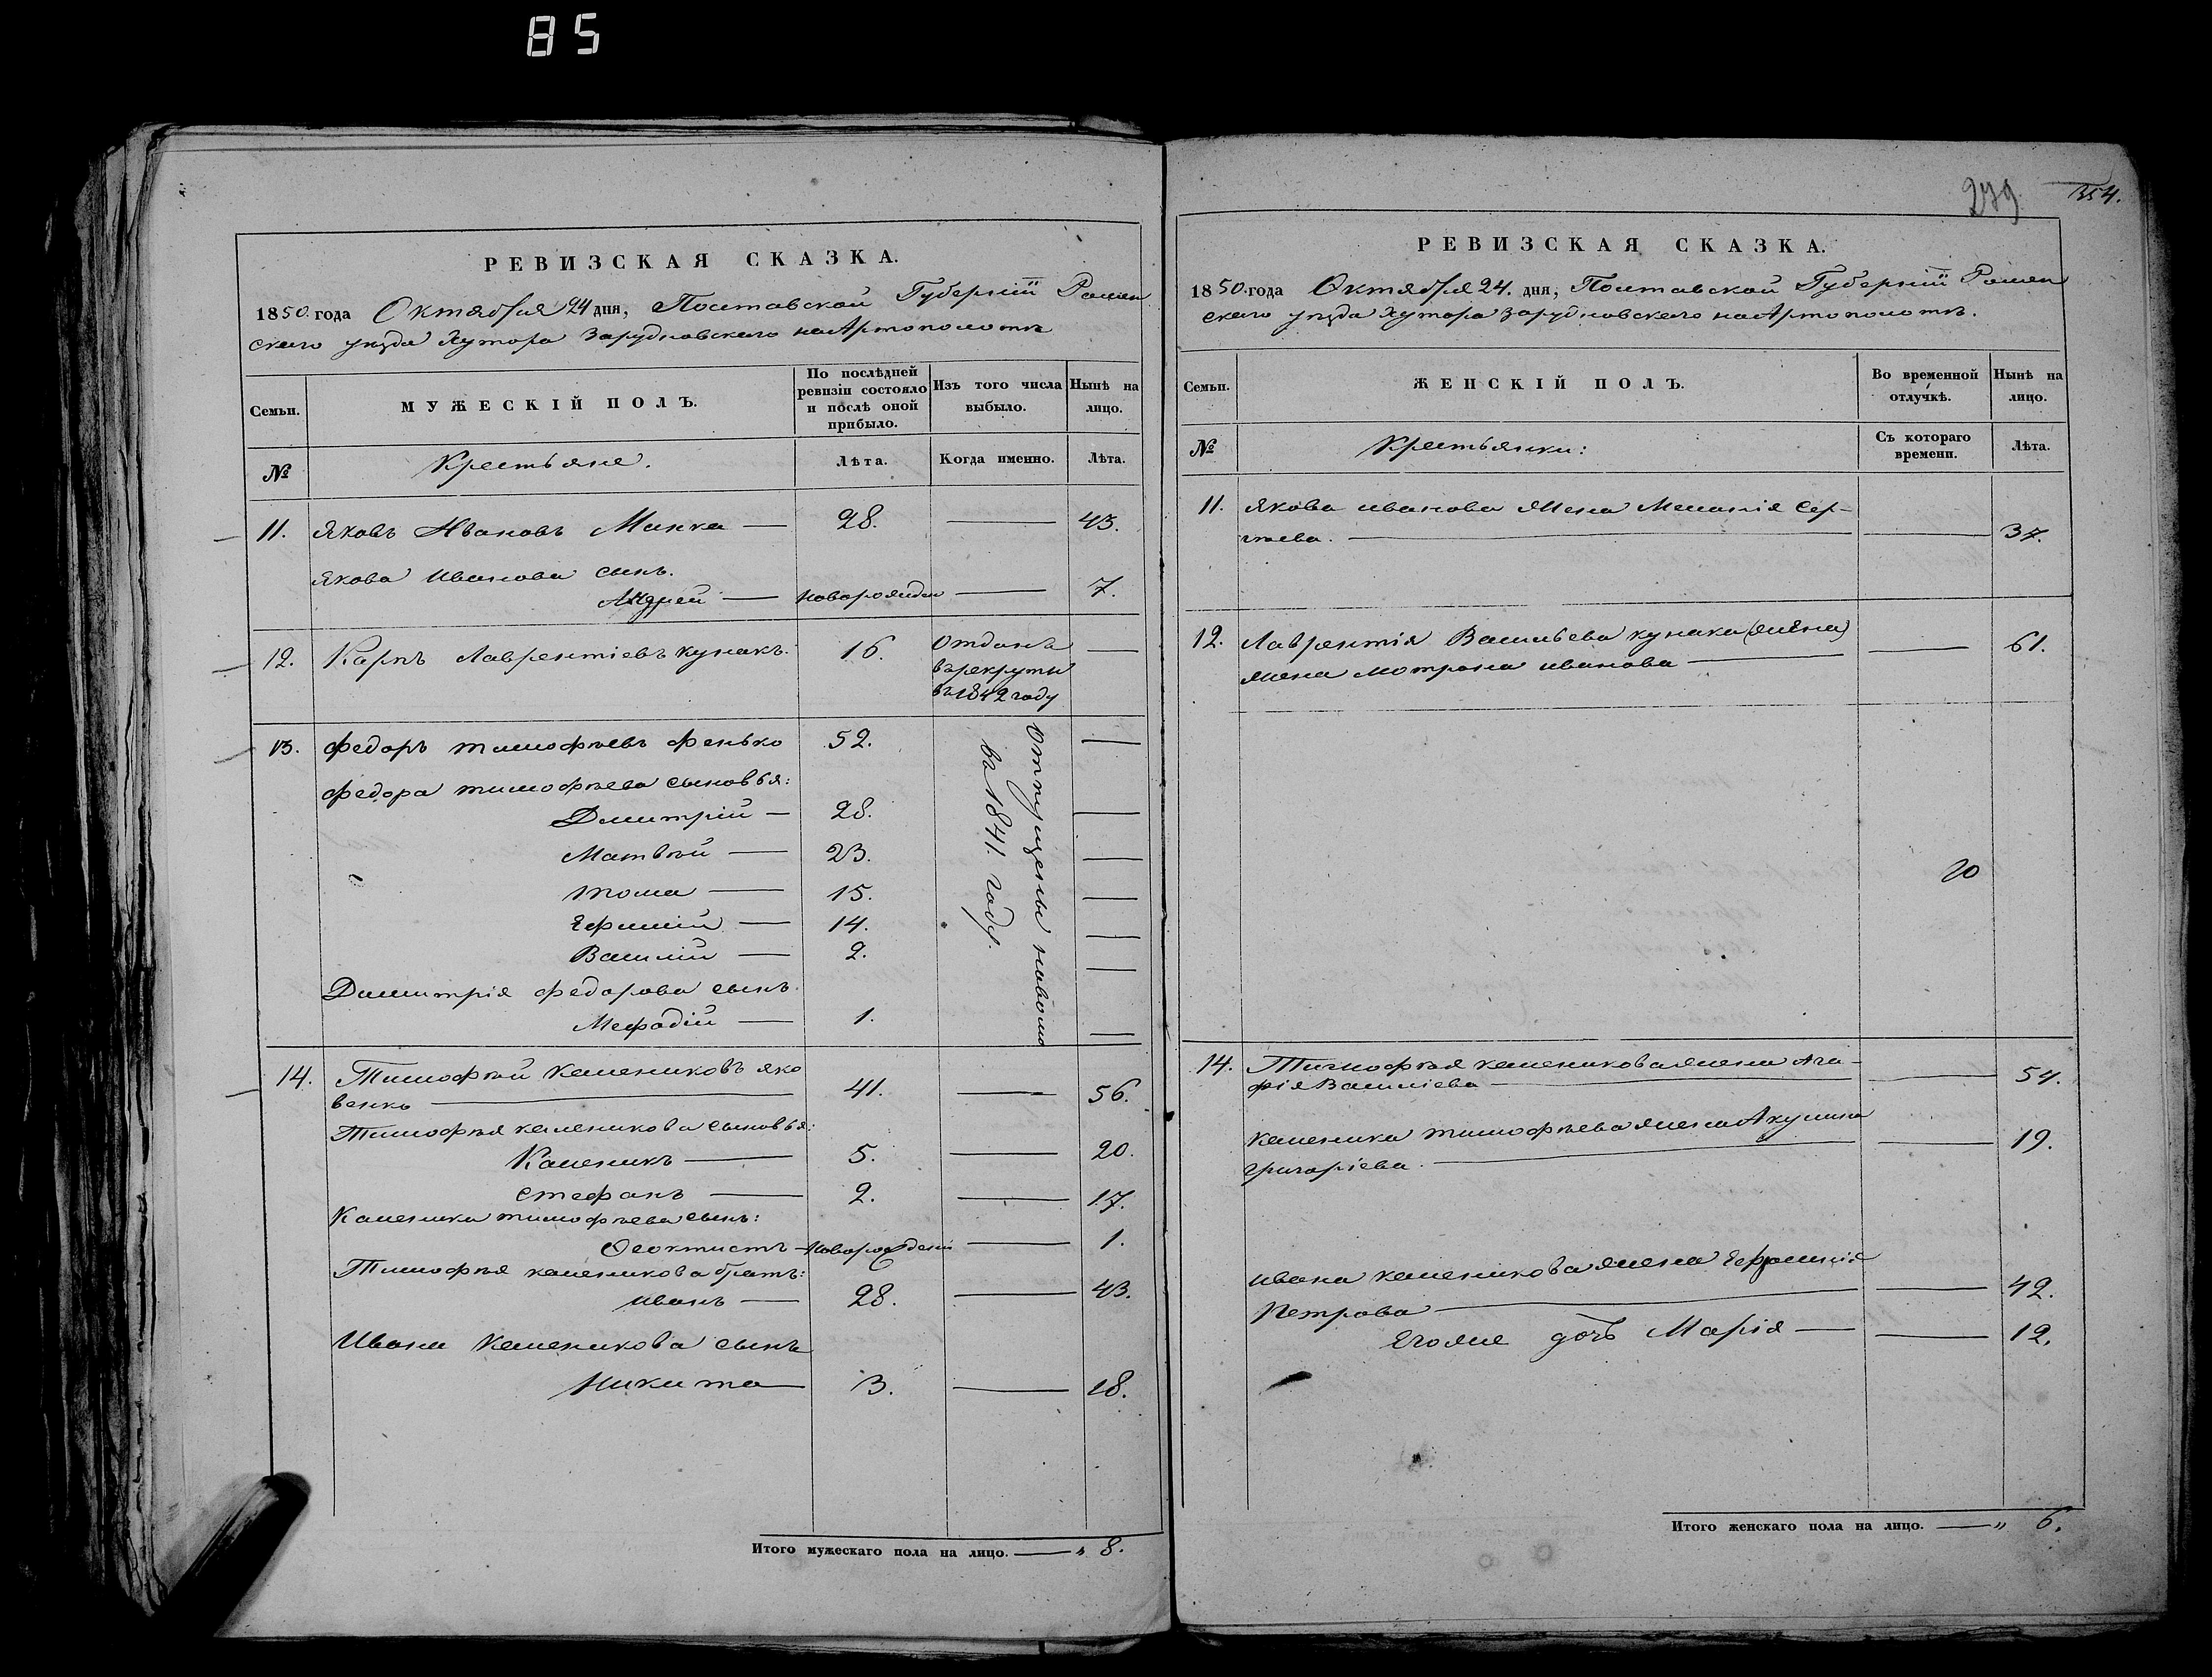 85
РЕВИЗСКАЯ СКАЗКА.
1850. года Октября 24 дня, Полтавской Губерніи Ромен
скаго уѣзда Хутора Зарудновскаго на Артополотѣ
Семьи.
МУЖЕСКІЙ ПОЛЪ.
По послѣдней ревизіи состояло и послѣ оной прибыло.
Изъ того числа выбыло.
Нынѣ на лицо.
№
Крестьяне.
Лѣта.
Когда именно.
Лѣта.
11. Яковъ Ивановъ Минка — 28. — 43.
Якова Иванова сынъ.
Андрей — новорожден — 7.
12. Карпъ Лаврентіевъ кунакъ. 16. Отданъ —
въ рекруты
въ 1842 году
13. Федоръ тимофѣевъ Фенько 52. —
Федора тимофѣева сыновья:
Димитрій — 28. —
Матвѣй — 23. —
тома — 15. —
Ефимій — 14. —
Василій — 2. —
Димитрія Федорова сынъ.
Мефодій — 1. —
Отпущены на волю
въ 1841. году.
14. Тимофѣй калениковъ яко
венко — 41. — 56.
Тимофѣя каленикова сыновья:
Каленикъ — 5. — 20.
Стефанъ — 2. — 17.
Каленика тимофѣева сынъ:
Ѳеоктистъ — новорожденъ — 1.
Тимофѣя каленикова братъ:
иванъ — 28. — 43.
Ивана каленикова сынъ
Никита — 3. — 18.
Итого мужескаго пола на лицо. — „ 8.
279.
354.
РЕВИЗСКАЯ СКАЗКА.
1850. года Октября 24. дня, Полтавской Губерніи Ромен
скаго уѣзда Хутора Зарудновскаго на Артополотѣ.
Семьи.
ЖЕНСКІЙ ПОЛЪ.
Во временной отлучкѣ.
Нынѣ на лицо.
№
Крестьянки:
Съ котораго времени.
Лѣта.
11. Якова иванова жена Меланія Сер-
гѣева. — — 37.
12. Лаврентія Васильева кунака (жена)
жена мотрона иванова — — 61.
14. Тимофѣя каленикова жена Ага-
фія Василіева — — 54.
каленика тимофѣева жена Акулина
григоріева. — — 19.
ивана каленикова жена Ефросинія
Петрова — — 42.
Егоже дочь Марія — — 12.
Итого женскаго пола на лицо. — „ 6.